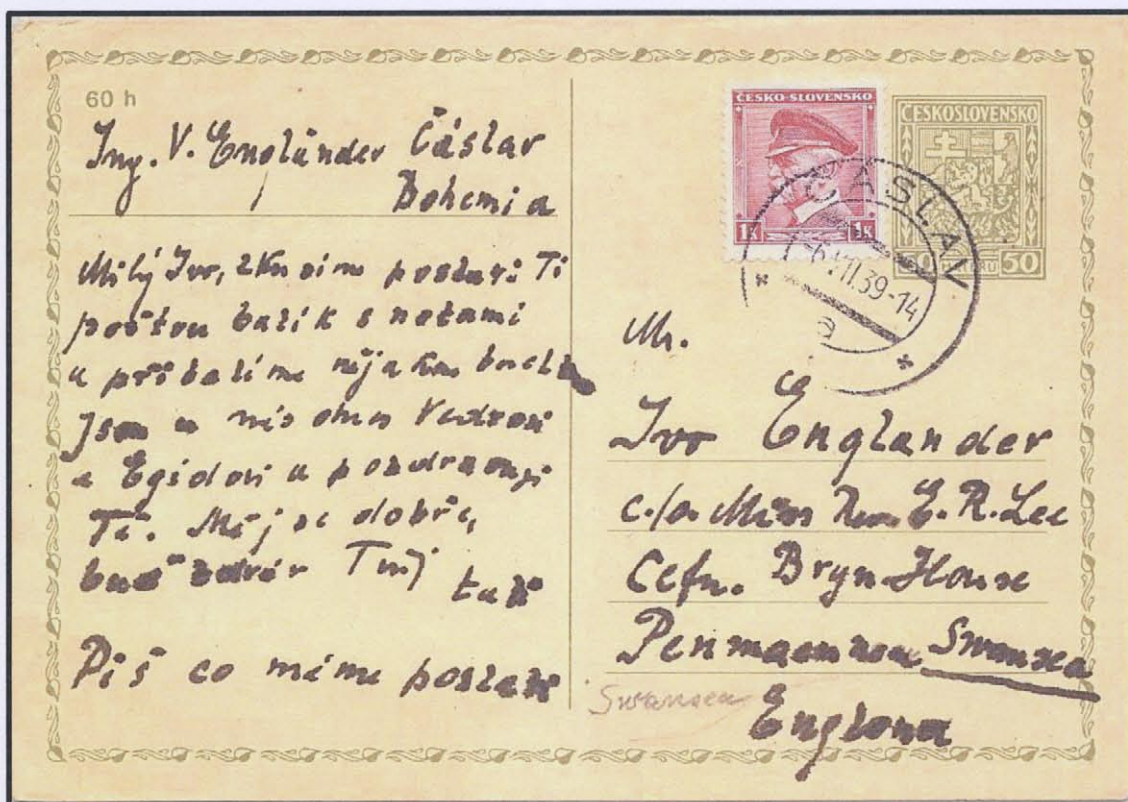 60 h
Ing. V. Engländer Čáslav
Bohemia
Milý Ivo, zkusíme poslati Ti
poštou balík s notami
a přibalíme nějakou
jsou u nás dnes
a Egidovi a pozdravují
Tě. Měj se dobře,
buď zdráv Tvůj
Piš co máme poslati
ČESKO-SLOVENSKO
1K 1K
ČESKOSLOVENSKO
50 HALÉŘŮ 50
ČÁSLAV
-6.VII.39-14
Mr.
Ivo Englander
c./o. Miss E. R. Lee
Cefn. Bryn House
Penmaen Swansea
Swansea
England